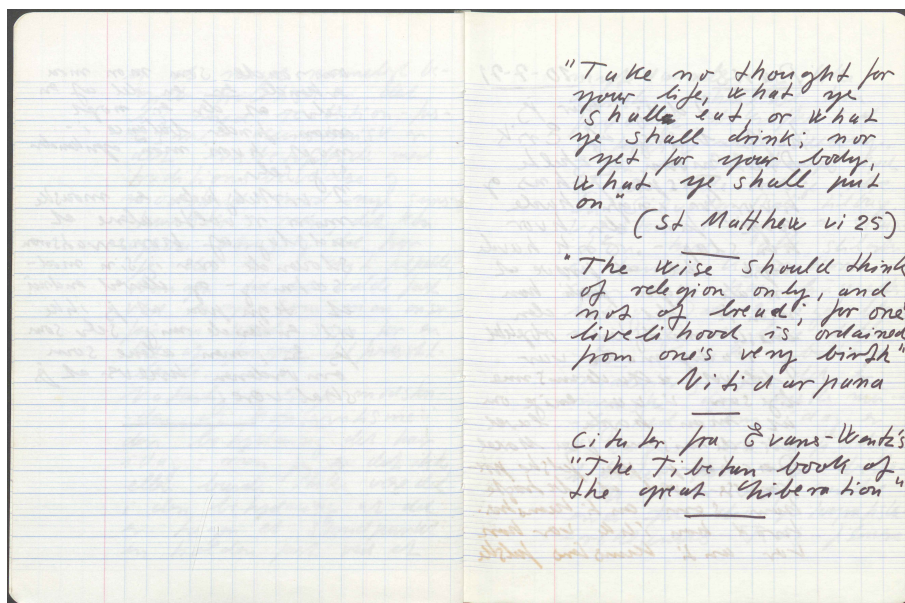 "Take no thought for
your life, what ye
shall eat, or what
ye shall drink; nor
yet for your body,
what ye shall put
on"
(St Matthew vi 25)
"The wise should think
of religion only, and
not of bread; for one's
livelihood is ordained
from one's very birth"
Nitidarpana
Citater fra Evans-Wentz's
"The Tibetan book of
the great liberation"